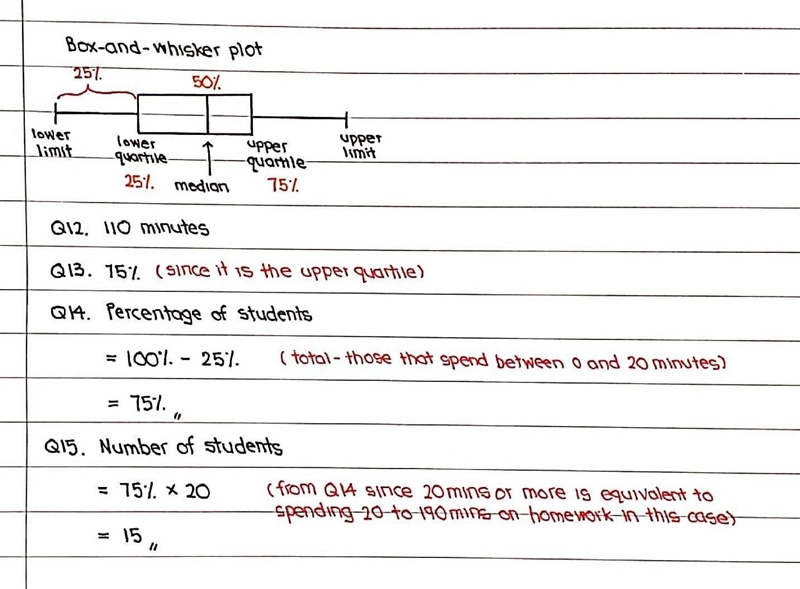 Box-and-whisker plot
25%
50%
lower limit
lower quartile
upper quartile
upper limit
25%
median
75%
Q12. 110 minutes
Q13. 75% (since it is the upper quartile)
Q14. Percentage of students
= 100% - 25% (total - those that spend between 0 and 20 minutes)
= 75% 〃
Q15. Number of students
= 75% × 20 (from Q14 since 20 mins or more is equivalent to
spending 20 to 190 mins on homework in this case)
= 15 〃